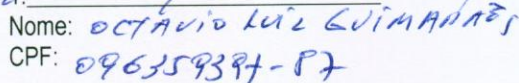 Nome: OCTÁVIO LUIZ GUIMARÃES
CPF: 096359397-87